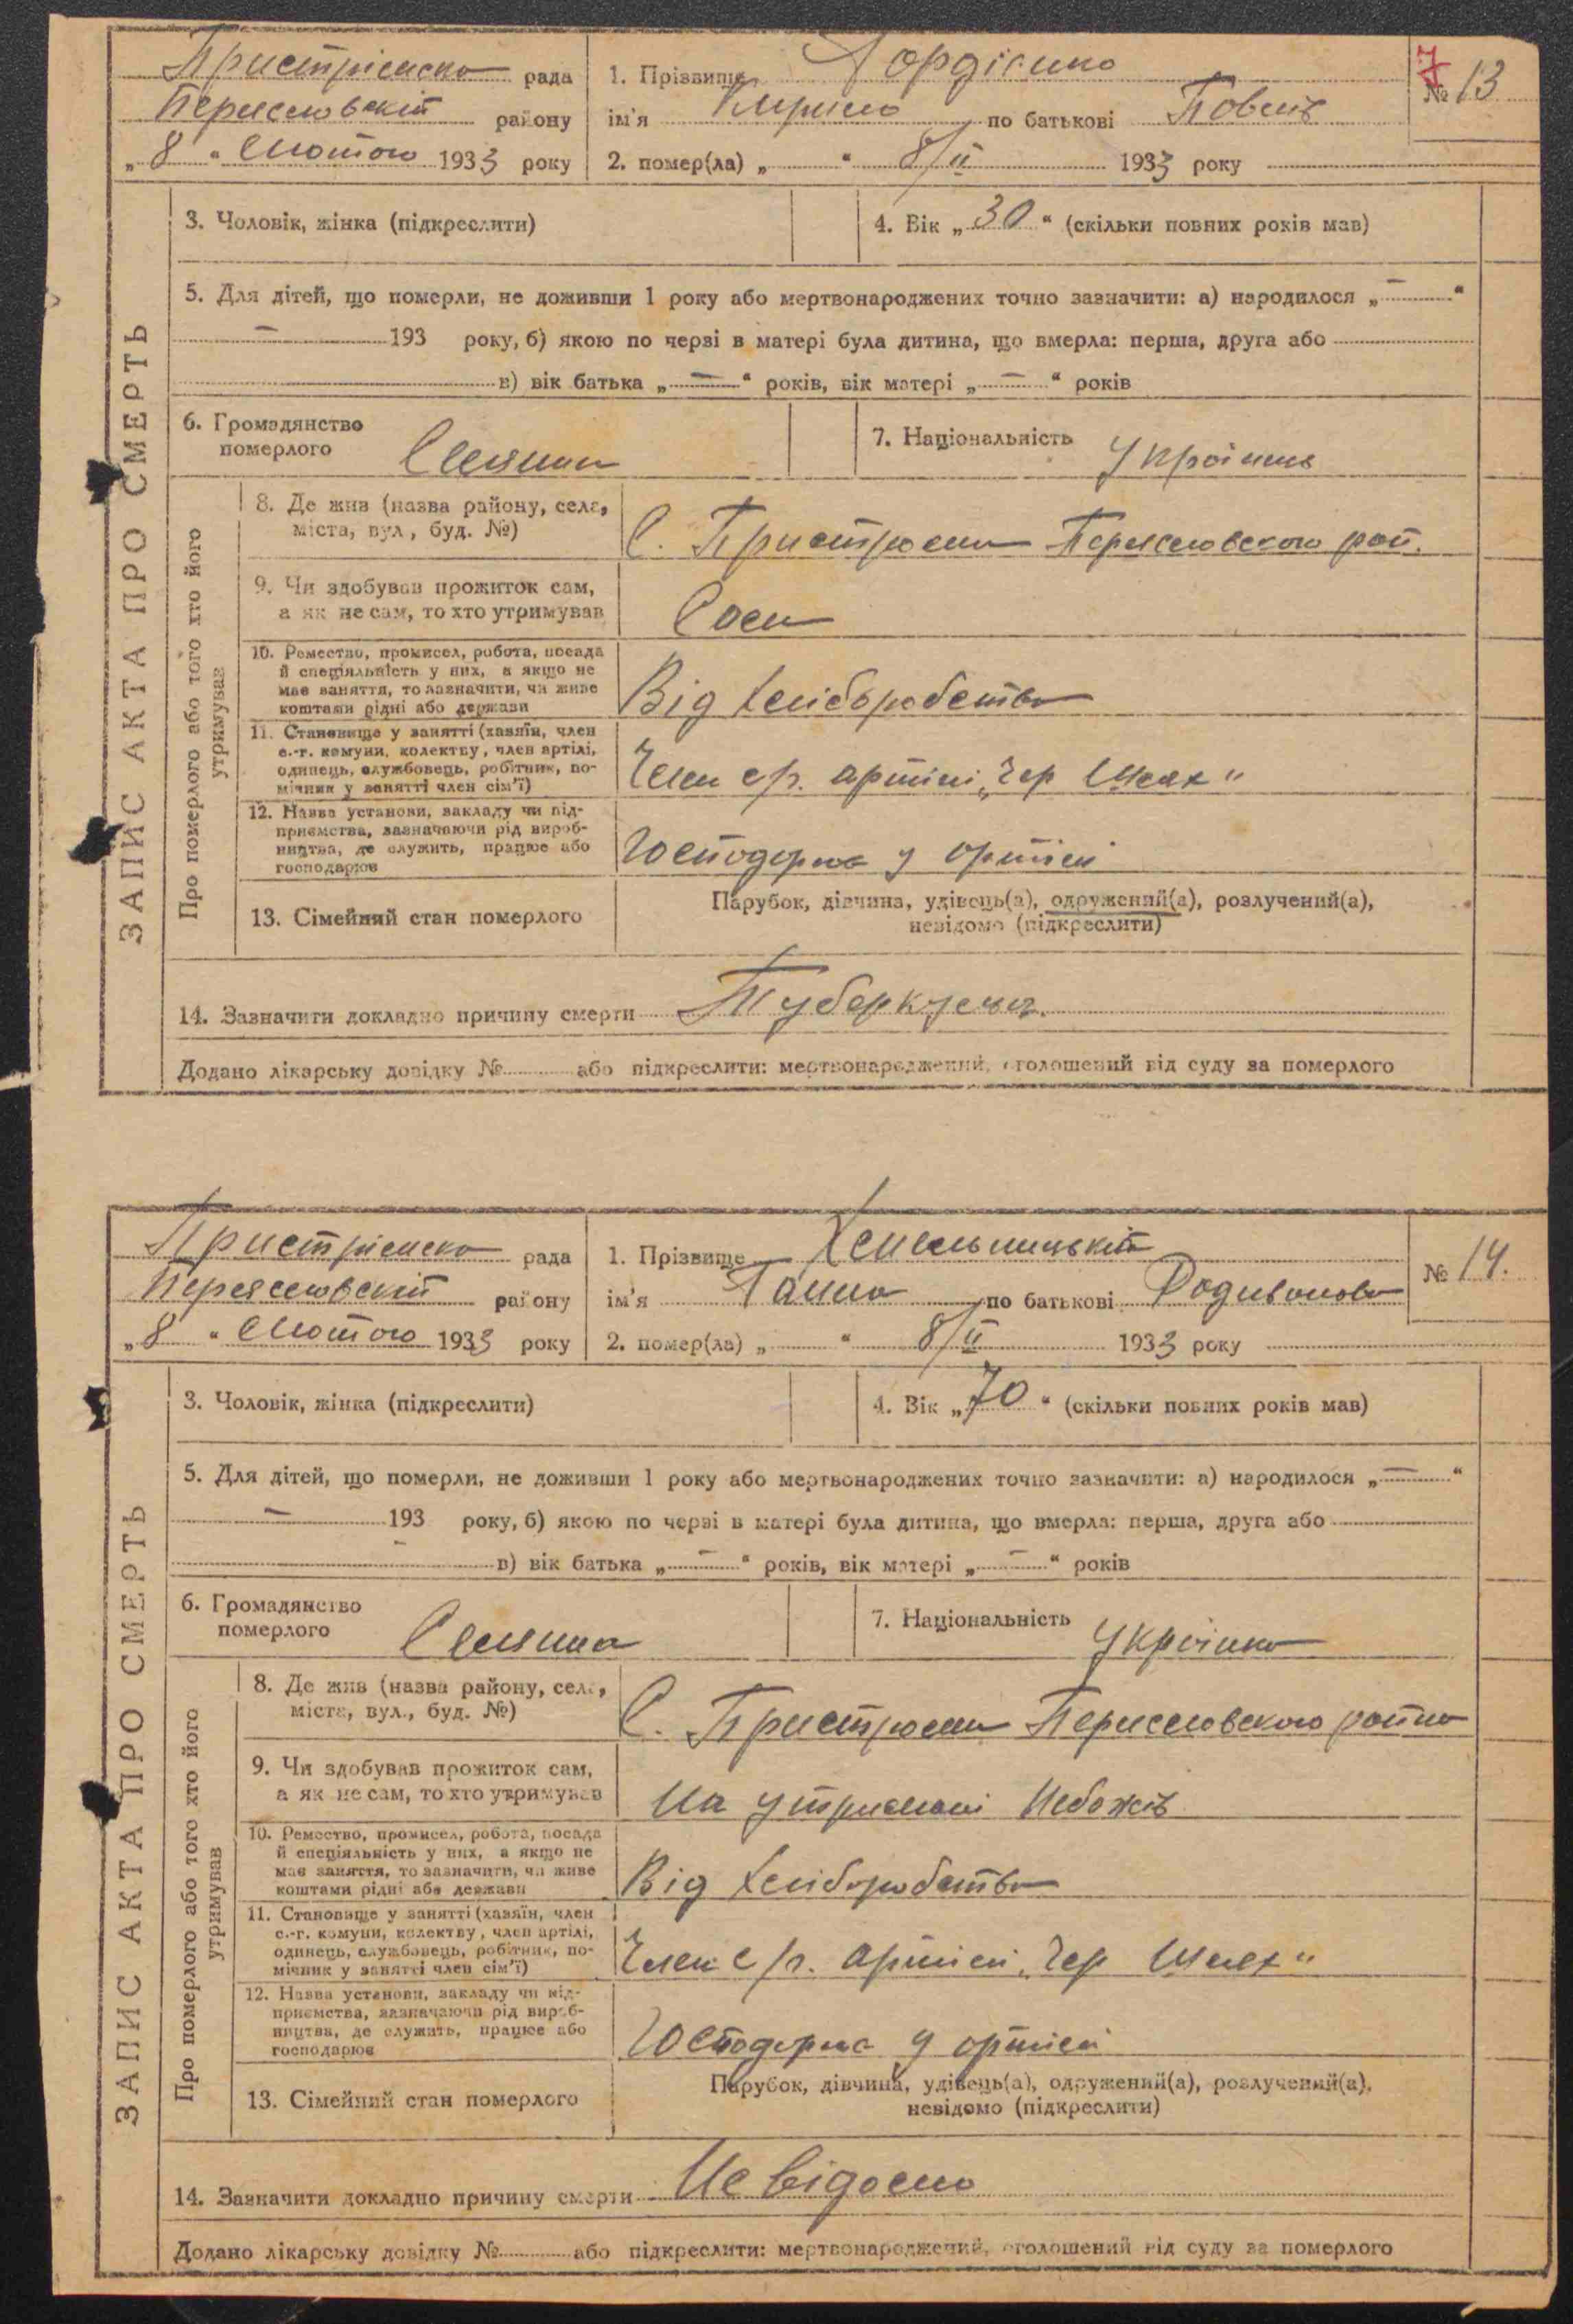 Пристрімска рада
1. Прізвище Гордієнко
№ 13
7
Переяславскій району
ім'я Кирило по батькові Павлів
„ 8 “ Лютого 1933 року
2. помер(ла) „ “ 8/II 1933 року
ЗАПИС АКТА ПРО СМЕРТЬ
3. Чоловік, жінка (підкреслити)
4. Вік „ 30 “ (скільки повних років мав)
5. Для дітей, що померли, не доживши 1 року або мертвонароджених точно зазначити: а) народилося „ — “
— 193 року, б) якою по черзі в матері була дитина, що вмерла: перша, друга або
в) вік батька „ — “ років, вік матері „ — “ років
6. Громадянство
померлого Селянин
7. Національність Украінець
Про померлого або того хто його
утримував
8. Де жив (назва району, села,
міста, вул, буд. №)
С. Пристроми Переяславского рай.
9. Чи здобував прожиток сам,
а як не сам, то хто утримував
Сам
10. Ремество, промисел, робота, посада
й спеціяльність у них, а якщо не
має заняття, то зазначити, чи живе
коштами рідні або держави
Від Хліборобства
11. Становище у занятті (хазяїн, член
с.-г. комуни, колективу, член артілі,
одинець, службовець, робітник, по-
мічник у занятті член сім'ї)
Член с/г. артілі „Чер Шлях“
12. Назва установи, закладу чи під-
приємства, зазначаючи рід вироб-
ництва, де служить, працює або
господарює
Господарює у артілі
13. Сімейний стан померлого
Парубок, дівчина, удівець(а), одружений(а), розлучений(а),
невідомо (підкреслити)
14. Зазначити докладно причину смерти Туберкульоз.
Додано лікарську довідку № або підкреслити: мертвонароджений, оголошений від суду за померлого
Пристрімска рада
1. Прізвище Хмельницькій
№ 14.
Переяславскій району
ім'я Ганна по батькові Родивонова
„ 8 “ Лютого 1933 року
2. помер(ла) „ “ 8/II 1933 року
ЗАПИС АКТА ПРО СМЕРТЬ
3. Чоловік, жінка (підкреслити)
4. Вік „ 70 “ (скільки повних років мав)
5. Для дітей, що померли, не доживши 1 року або мертвонароджених точно зазначити: а) народилося „ — “
— 193 року, б) якою по черзі в матері була дитина, що вмерла: перша, друга або
в) вік батька „ — “ років, вік матері „ — “ років
6. Громадянство
померлого Селянка
7. Національність Украінка
Про померлого або того хто його
утримував
8. Де жив (назва району, села,
міста, вул., буд. №)
С. Пристроми Переяславского району
9. Чи здобував прожиток сам,
а як не сам, то хто утримував
На утримані Небожів
10. Ремество, промисел, робота, посада
й спеціяльність у них, а якщо не
має заняття, то зазначити, чи живе
коштами рідні або держави
Від Хліборобства
11. Становище у занятті (хазяїн, член
с.-г. комуни, колективу, член артілі,
одинець, службовець, робітник, по-
мічник у занятті член сім'ї)
Член с/г. артілі „Чер Шлях“
12. Назва установи, закладу чи під-
приємства, зазначаючи рід вироб-
ництва, де служить, працює або
господарює
Господарює у артілі
13. Сімейний стан померлого
Парубок, дівчина, удівець(а), одружений(а), розлучений(а),
невідомо (підкреслити)
14. Зазначити докладно причину смерти Невідомо
Додано лікарську довідку № або підкреслити: мертвонароджений, оголошений від суду за померлого